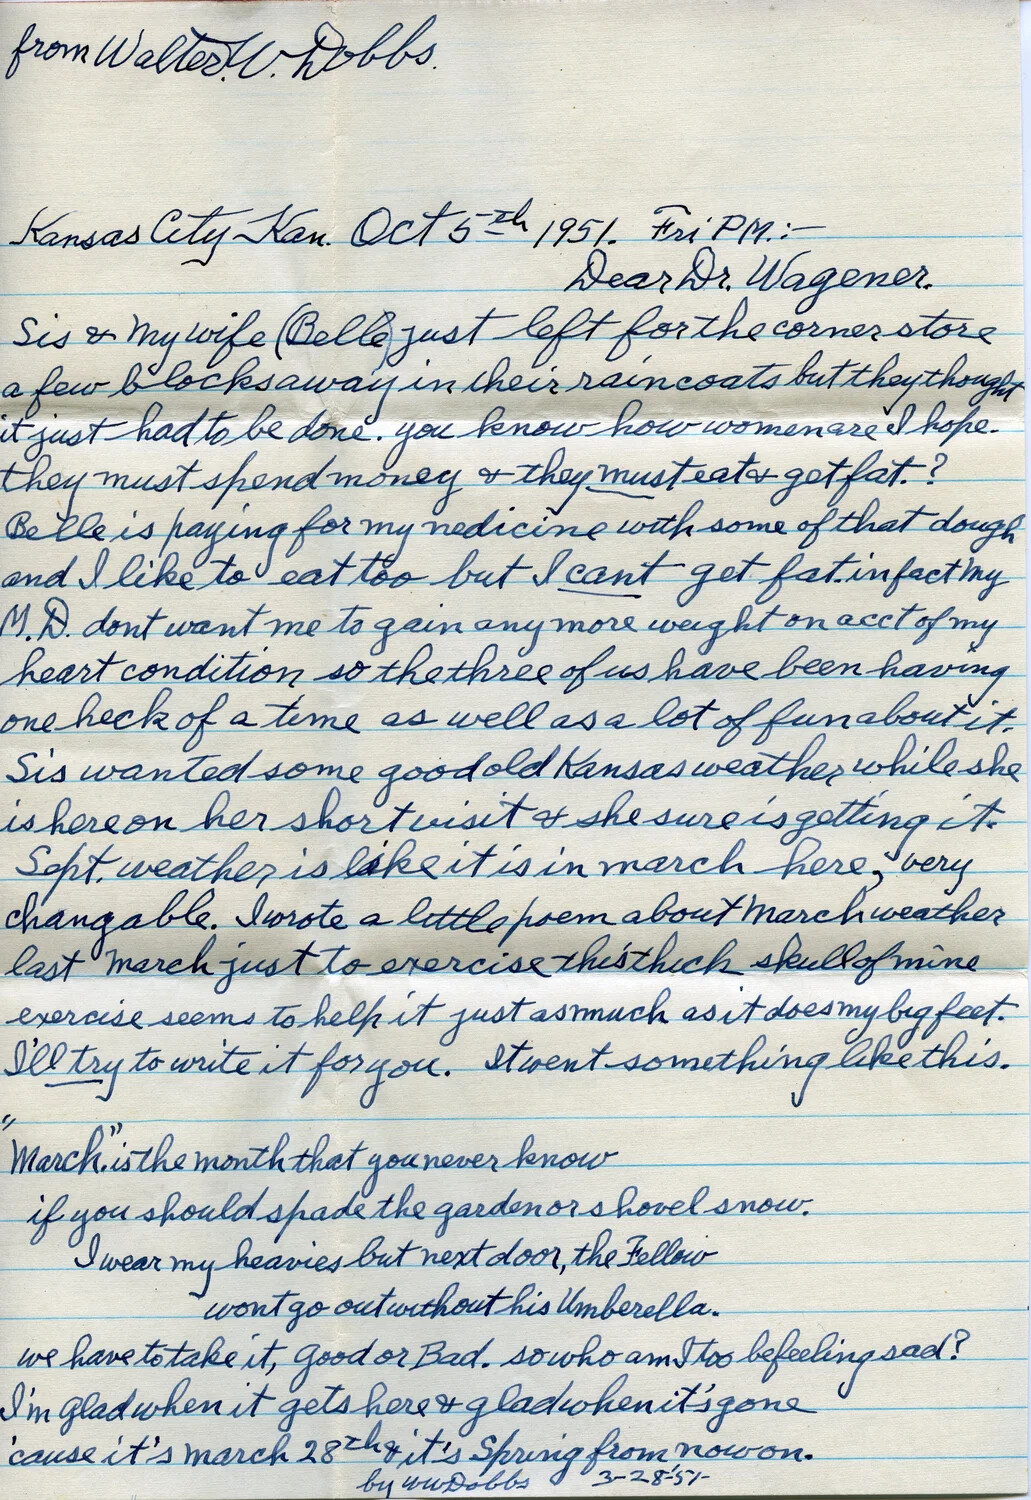 from Walter. W. Dobbs.
Kansas City Kan. Oct 5th 1951. Fri PM.:-
Dear Dr. Wagener.
Sis & My wife (Belle) just left for the corner store
a few blocks away in their raincoats but they thought
it just had to be done. you know how women are I hope.
they must spend money & they must eat & get fat.?
Belle is paying for my medicine with some of that dough
and I like to eat too but I cant get fat. in fact My
M.D. dont want me to gain any more weight on acct of my
heart condition so the three of us have been having
one heck of a time as well as a lot of fun about it.
Sis wanted some good old Kansas weather while she
is here on her short visit & she sure is getting it.
Sept. weather is like it is in march here, very
changable. I wrote a little poem about March weather
last March just to exercise this thick skull of mine
exercise seems to help it just as much as it does my big feet.
I'll try to write it for you. It went something like this.
"March." is the month that you never know
if you should spade the garden or shovel snow.
I wear my heavies but next door, the Fellow
wont go out without his Umberella.
we have to take it, Good or Bad. so who am I too be feeling sad?
I'm Glad when it gets here & glad when it's gone
'cause it's march 28th & it's Spring from now on.
by WW Dobbs 3-28-51-